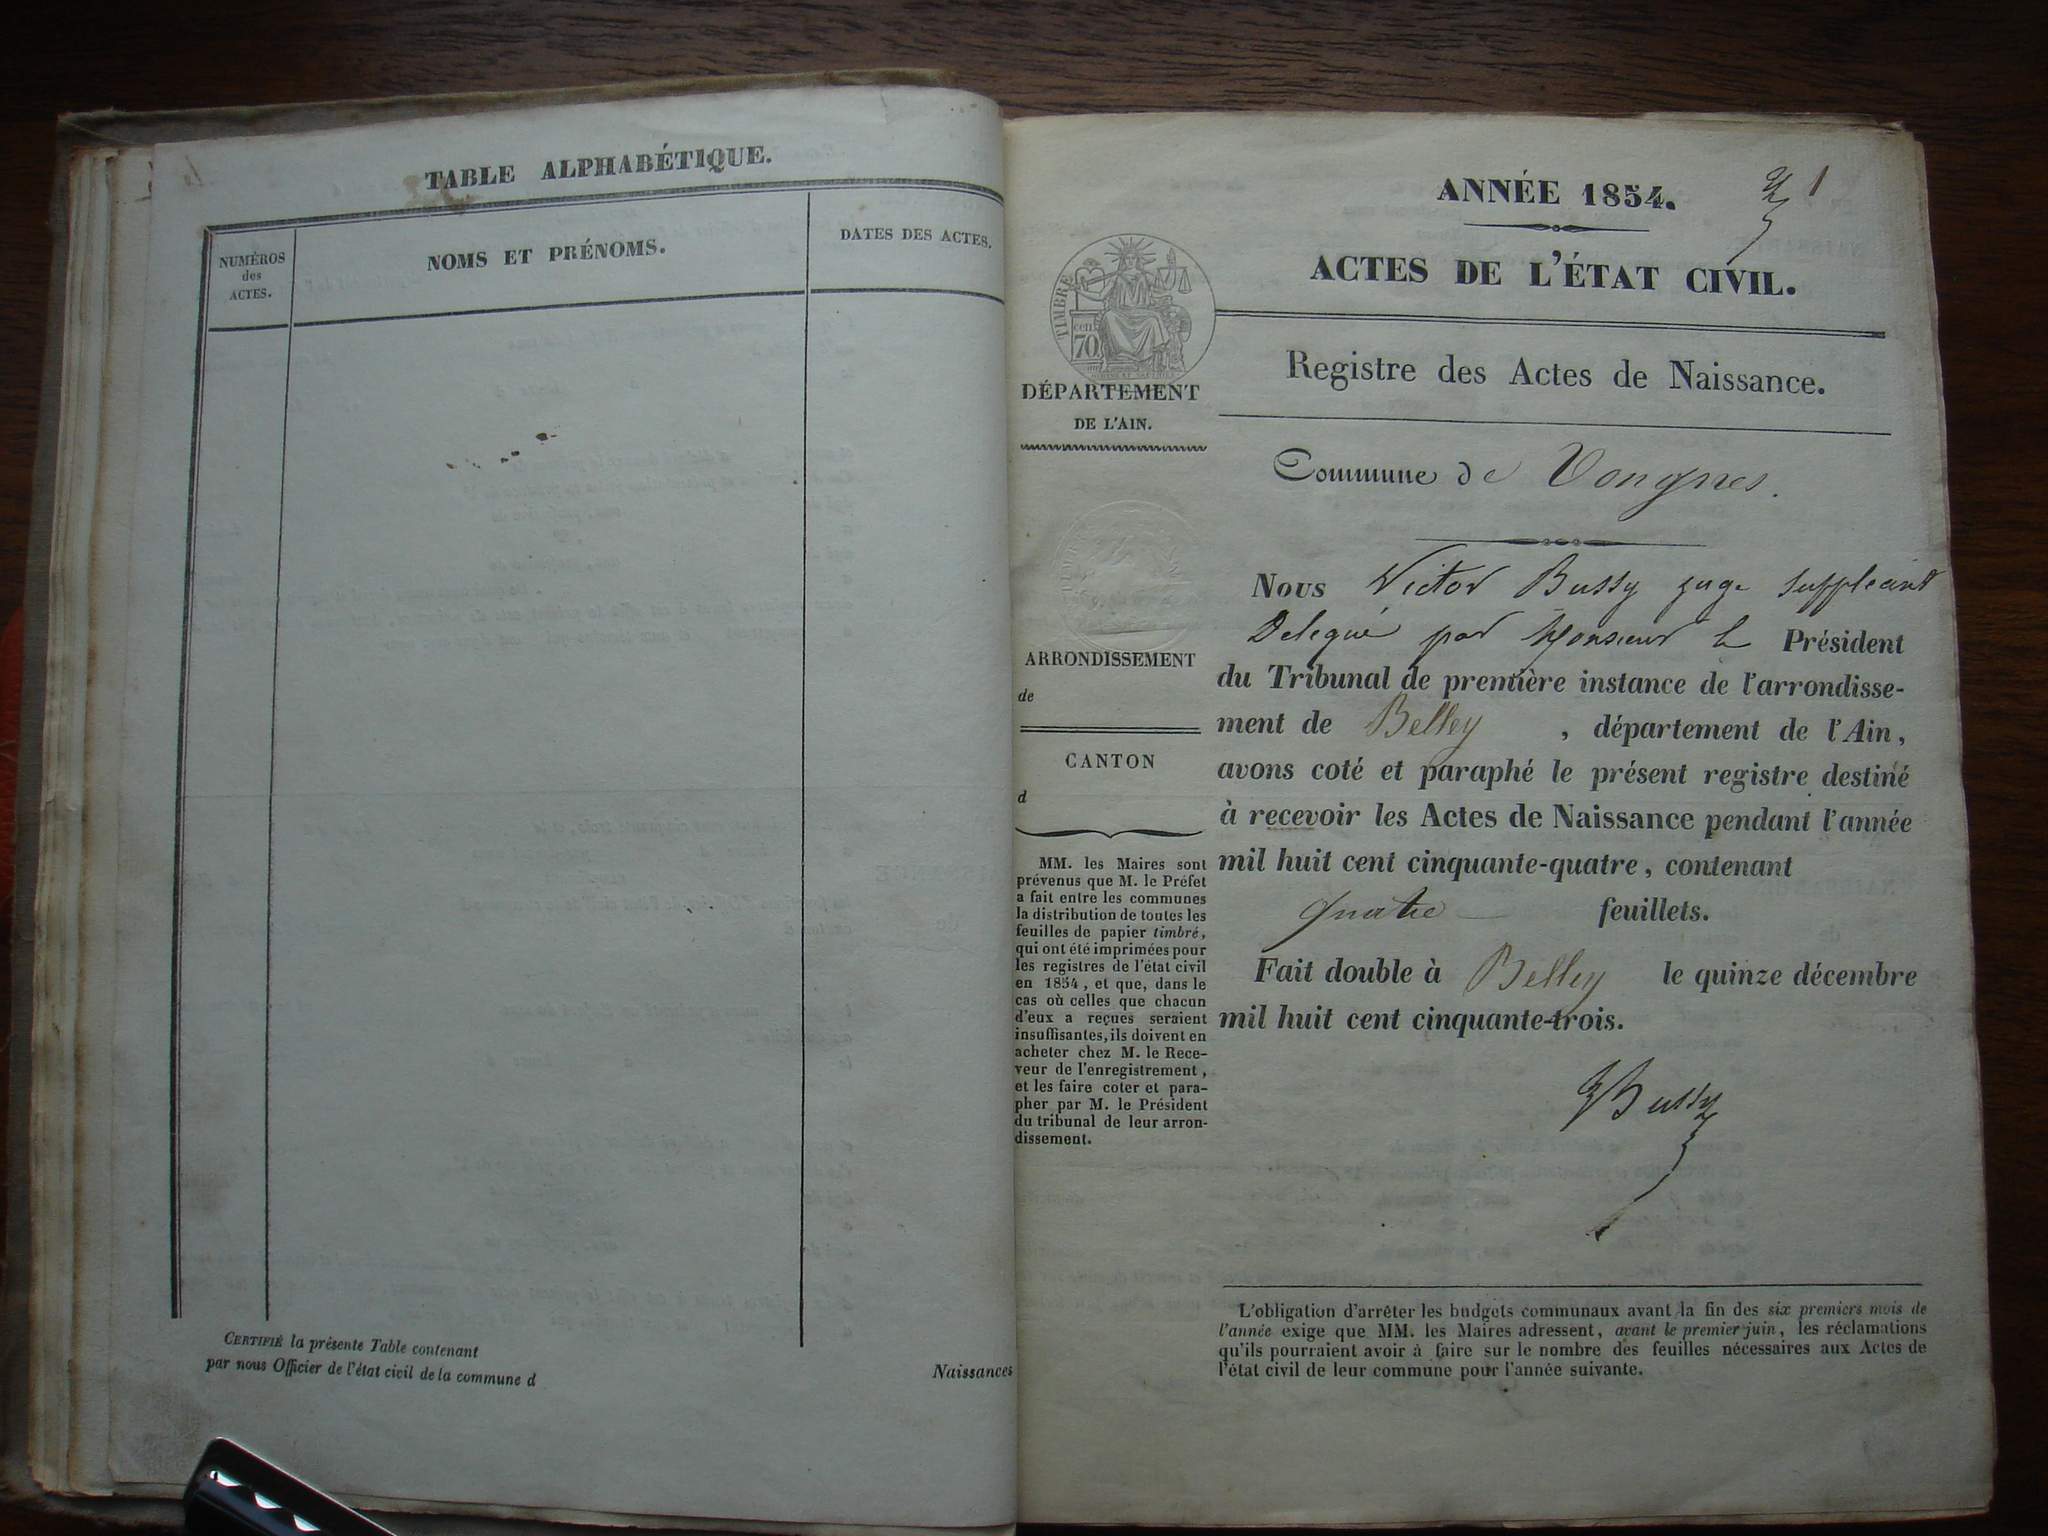 TABLE ALPHABÉTIQUE.
NUMÉROS
des
ACTES.
NOMS ET PRÉNOMS.
DATES DES ACTES.
CERTIFIÉ la présente Table contenant
par nous Officier de l'état civil de la commune d
Naissances
1
ANNÉE 1854.
ACTES DE L'ÉTAT CIVIL.
TIMBRE
cen
70
DÉPARTEMENT
DE L'AIN.
Registre des Actes de Naissance.
Commune de Vongnes.
Nous Victor Bussy juge suppléant
Delegué par Monsieur le Président
du Tribunal de première instance de l'arrondisse-
ment de Belley , département de l'Ain,
avons coté et paraphé le présent registre destiné
à recevoir les Actes de Naissance pendant l'année
mil huit cent cinquante-quatre, contenant
quatre feuillets.
Fait double à Belley le quinze décembre
mil huit cent cinquante-trois.
Bussy
ARRONDISSEMENT
de
CANTON
d
MM. les Maires sont
prévenus que M. le Préfet
a fait entre les communes
la distribution de toutes les
feuilles de papier timbré,
qui ont été imprimées pour
les registres de l'état civil
en 1854, et que, dans le
cas où celles que chacun
d'eux a reçues seraient
insuffisantes, ils doivent en
acheter chez M. le Rece-
veur de l'enregistrement,
et les faire coter et para-
pher par M. le Président
du tribunal de leur arron-
dissement.
L'obligation d'arrêter les budgets communaux avant la fin des six premiers mois de
l'année exige que MM. les Maires adressent, avant le premier juin, les réclamations
qu'ils pourraient avoir à faire sur le nombre des feuilles nécessaires aux Actes de
l'état civil de leur commune pour l'année suivante.